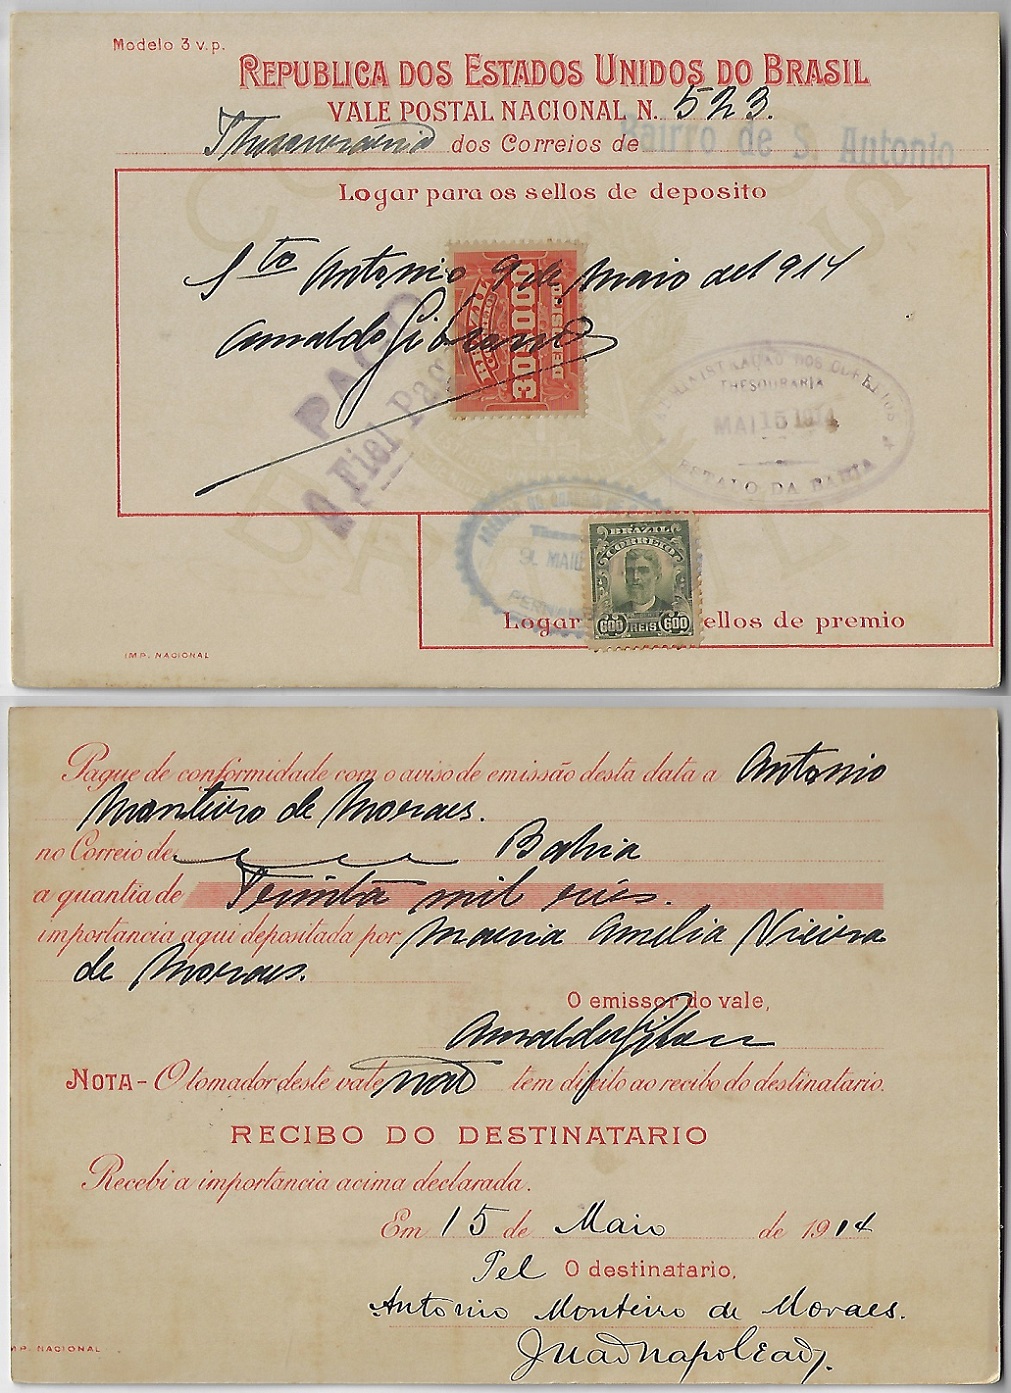 Modelo 3 v.p.
REPUBLICA DOS ESTADOS UNIDOS DO BRASIL
VALE POSTAL NACIONAL N. 523.
Thesouraria dos Correios de Bairro de S. Antonio
Logar para os sellos de deposito
Sto Antonio, 9 de Maio de 1914
Arnaldo
BRAZIL
CORREIO
30$000
DEPOSITO
PAGO
O Fiel Pag
ADMINISTRAÇÃO DOS CORREIOS
THESOURARIA
MAI 15 1914
ESTADO DA BAHIA
9 MAIO
PERNAMB
BRAZIL
CORREIO
600 REIS 600
Logar ellos de premio
IMP. NACIONAL
Pague de conformidade com o aviso de emissão desta data a Antonio
Monteiro de Moraes.
no Correio de Bahia
a quantia de Trinta mil reis.
importancia aqui depositada por Maria Amelia Vieira
de Moraes.
O emissor do vale,
Arnaldo
NOTA - O tomador deste vale não tem direito ao recibo do destinatario.
RECIBO DO DESTINATARIO
Recebi a importancia acima declarada.
Em 15 de Maio de 1914
Pel O destinatario,
Antonio Monteiro de Moraes.
MP. NACIONAL